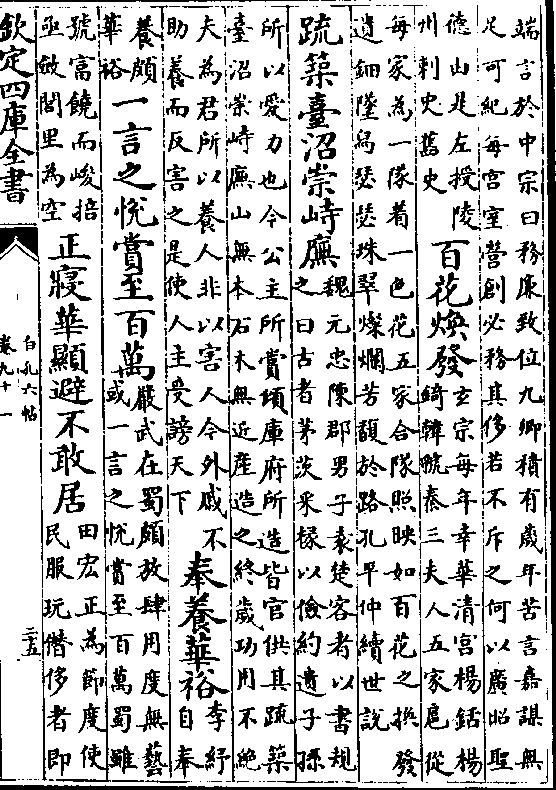 端言於中宗曰務廉致位九卿積有歲年苦言嘉謀無
足可紀每宫室營創必務其侈若不斥之何以廣昭聖
德山是左授陵
州刺史舊史
百花煥發
玄宗每年幸華清宮楊銛楊
錡韓虢秦三夫人五家扈從
每家為一隊着一色花五家合隊照映如百花之換發
遺鈿墜舄瑟瑟珠翠燦爛芳馥於路孔平仲續世說
疏築臺沼崇峙廡
魏元忠陳郡男子袁徒客者以書規
之曰古者茅茨采椽以儉約遺子孫
所以愛力也今公主所賞頃庫府所造皆官供其疏築
臺沼崇峙廡山無本石木無近産造之終歲功用不絶
夫為君所以養人非以害人今外戚不
助養而反害之是使人主受謗天下
奉養華裕
李紓
自奉
養頗
華裕
一言之悅賞至百萬
嚴武在蜀頗放肆用度無藝
或一言之悅賞至百萬蜀雖
號富饒而峻掊
亟斂閭里為空
正寢華顯避不敢居
田宏正為節度使
民服玩僭侈者即
欽定四庫全書
白孔六帖
卷九十一
二五